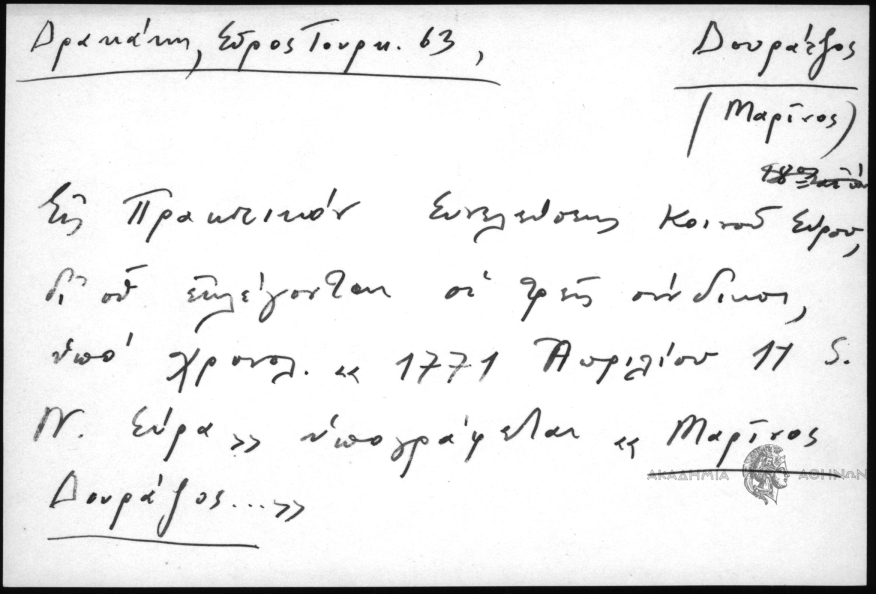 Δρακάκη, Σῦρος Τουρκ. 63,
Δουράτζος
(Μαρῖνος)
Εἰς Πρακτικὸν Συνελεύσεως Κοινοῦ Σύρου,
δι' οὗ ἐκλέγονται οἱ τρεῖς σύνδικοι,
ὑπὸ χρονολ. «1771 Ἀπριλίου 11 S.
N. Σύρα» ὑπογράφεται «Μαρῖνος
Δουράτζος...»
ΑΚΑΔΗΜΙΑ ΑΘΗΝΩΝ